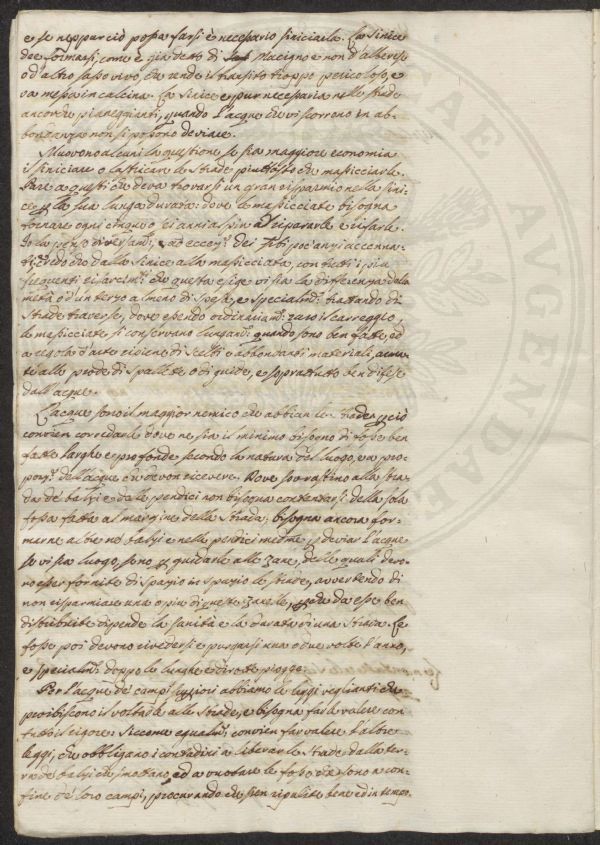 e se neppur ciò possa farsi è necessario siniciarla. La sinice
dee formarsi, come è già detto di macigno e non d'alberese
o d'altro sasso vivo, che rende il transito troppo pericoloso, e
va messa in calcina. La sinice è pur necessaria nelle strade
ancorché pianeggianti, quando l'acque che vi scorrono in ab-
bondanza non si possono deviare.
Muovono alcuni la questione se sia maggiore economia
il siniciare o lastricare le strade piuttosto che massicciarle.
Pare a questi che deva trovarsi un gran risparmio nella sini-
ce p la sua lunga durata: dove le massicciate bisogna
tornare ogni cinque o sei anni a ripararle e rifarle.
Io la penso diversamte, ed eccettti dei siti poc'anzi accenna-
ti, credo che dalla sinice alla massicciata, con tutti i più
frequenti risarcimti che questa esige vi sia la differenza della
metà o d'un terzo almeno di spesa, e specialmte trattando di
strade traverse, dove essendo ordinariamte raro il carreggio,
le massicciate si conservano lungamte quando sono ben fatte, ed
a regola d'arte ripiene di scelti e abbondanti materiali,
alle prode di spallette o di guide, e soprattutto ben difese
dall'acque.
L'acque sono il maggior nemico che abbian le strade, p ciò
convien corredarle dove ne sia il minimo bisogno di fosse ben
fatte larghe e profonde secondo la natura del luogo, e a pro-
porze dell'acque che devon ricevere. Dove sovrastino alla stra-
da de' balzi e delle pendici non bisogna contentarsi della sola
fossa fatta al margine della strada; bisogna ancora for-
marne altre ne' balzi e nelle pendici medme p deviar l'acque
se vi sia luogo, se no p guidarle alle zane, delle quali devo-
no esser fornite di spazio in spazio le strade, avvertendo di
non risparmiare una o più di queste zanelle, da esse ben
distribuite dipende la sanità e la durata di una strada. Le
fosse poi devono rivedersi e purgarsi una o due volte l'anno,
e specialmte doppo le lunghe e dirotte piogge.
Per l'acque de' campi abbiamo le leggi veglianti che
proibiscono il voltarle alle strade, e bisogna farle valere con
tutto il rigore. Siccome egualmte convien far valere l'altre
leggi, che obbligano i contadini a liberar le strade dalla ter-
ra de' balzi che smottano, ed a vuotare le fosse che sono a con-
fine de' loro campi, procurando che sien ripulite bene ed in tempo.
CAE AVGENDAE